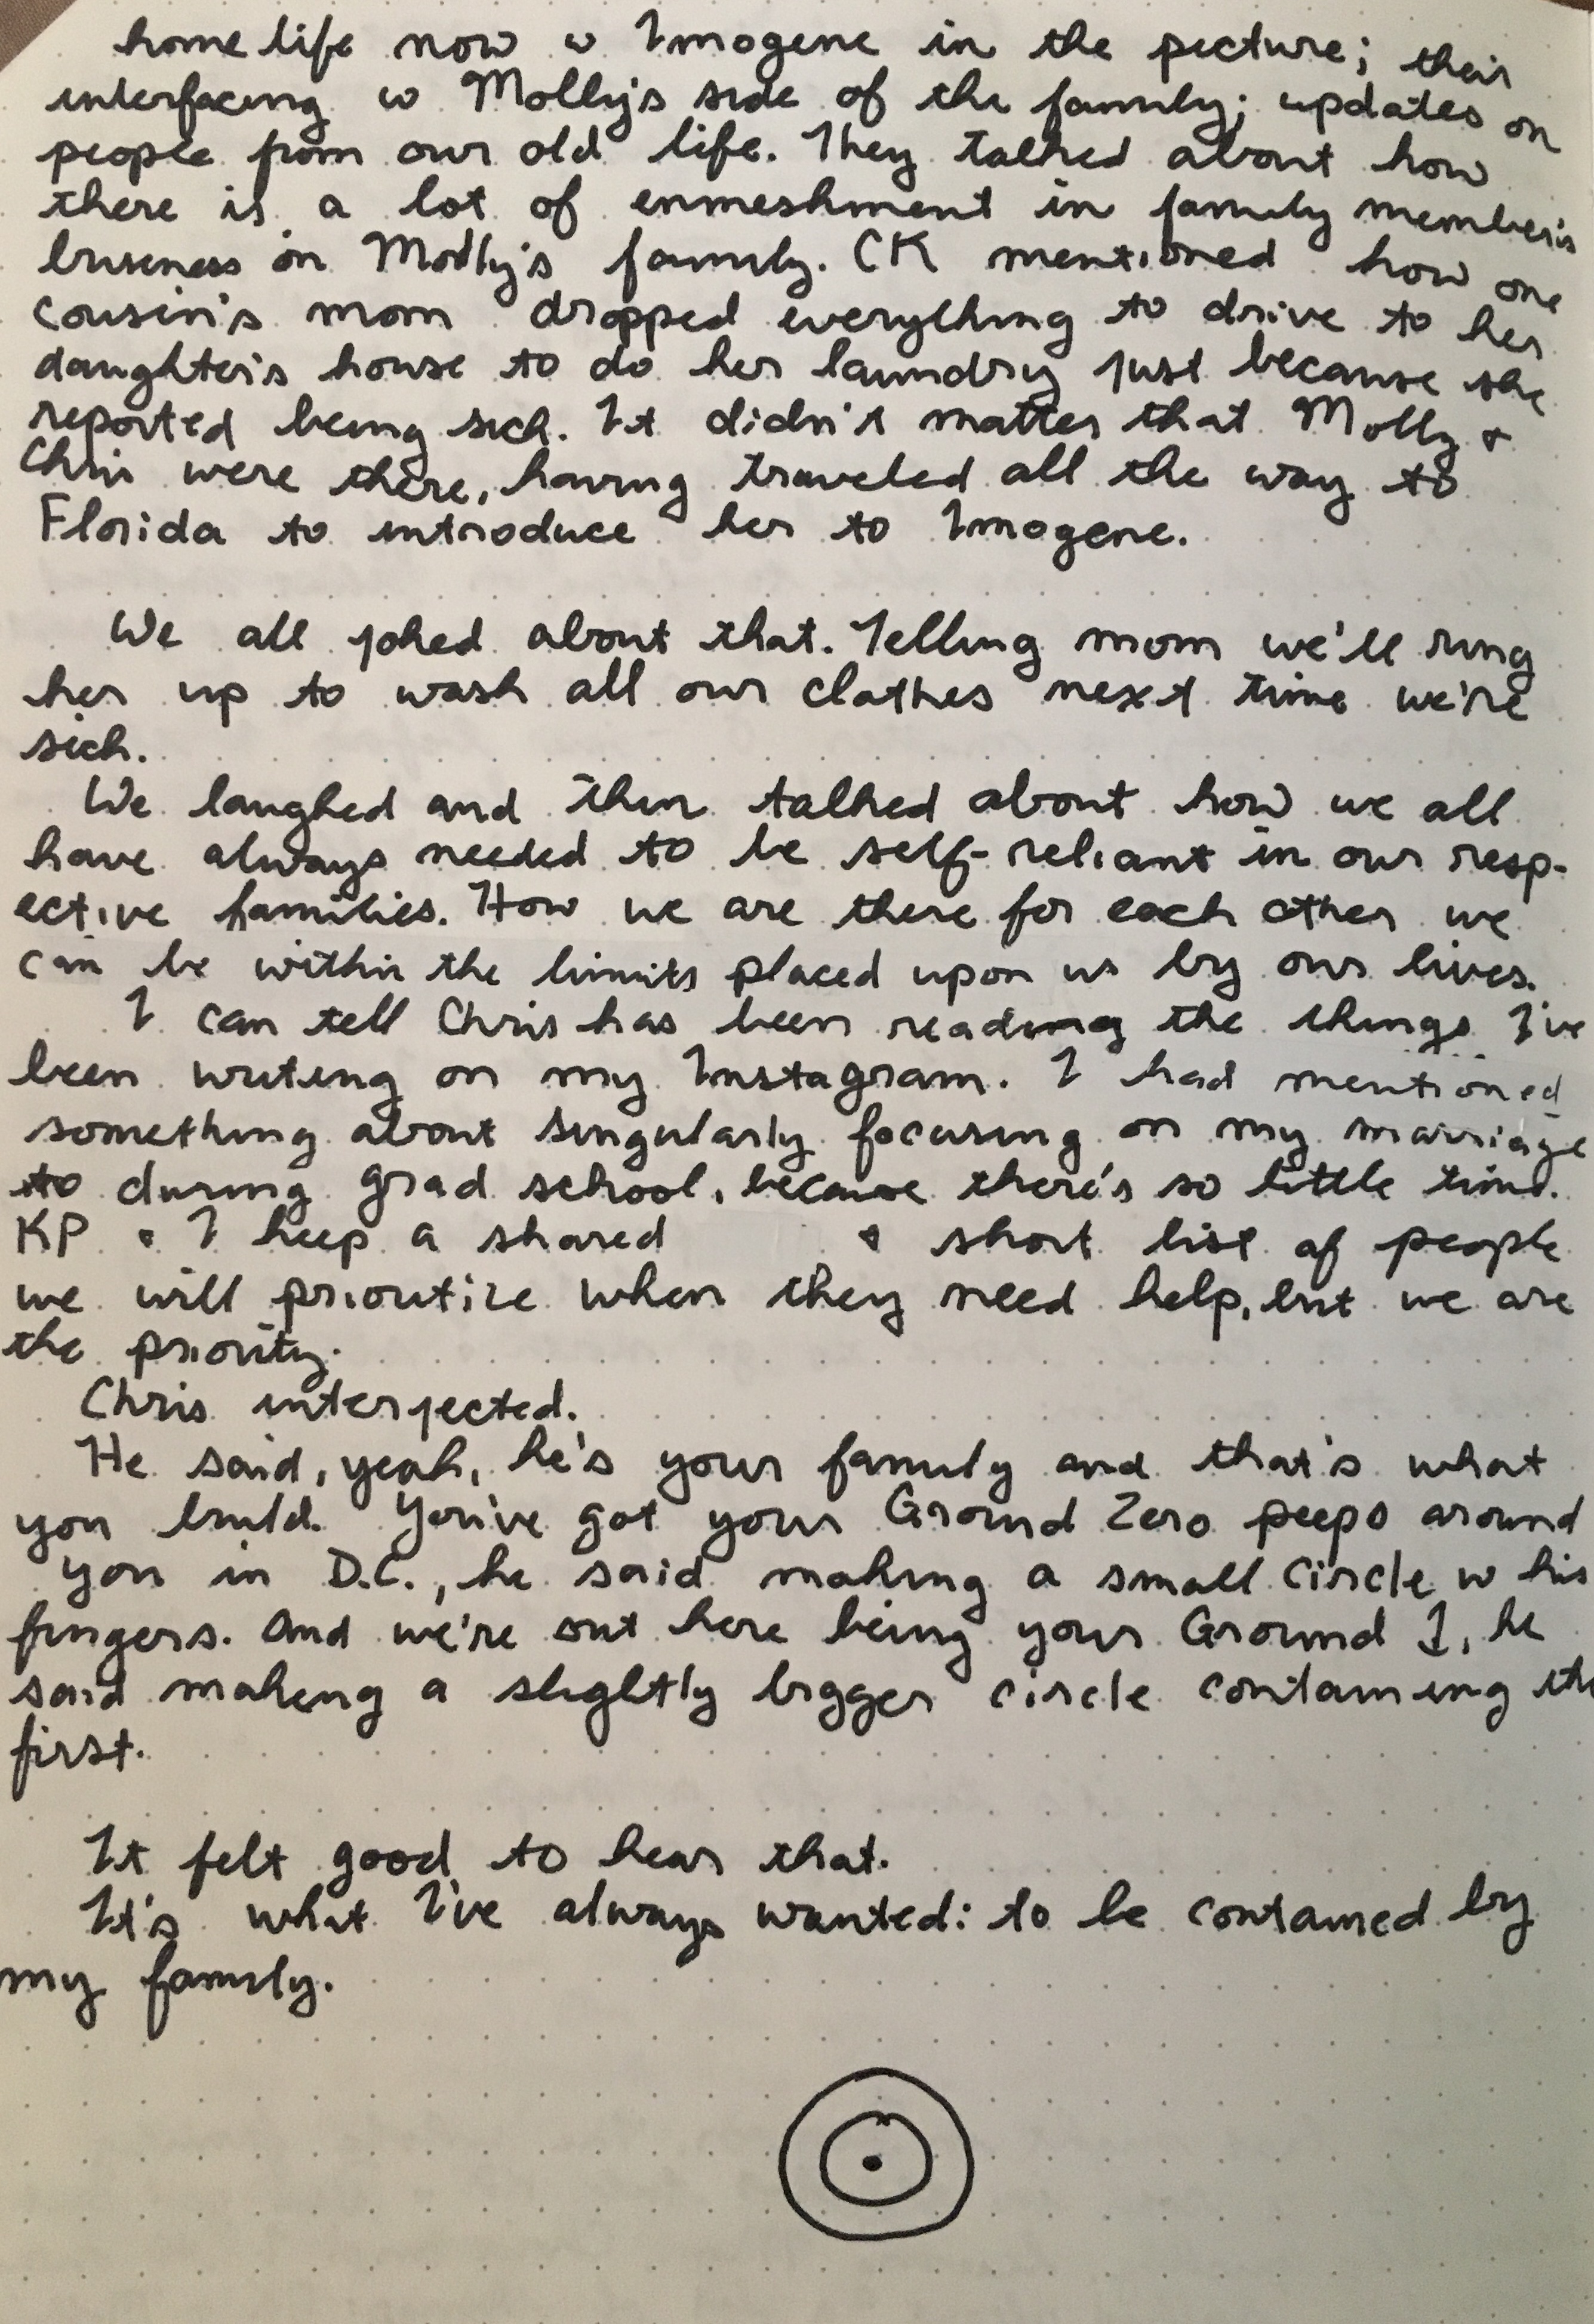 home life now w Imogene in the picture; their
interfacing w Molly's side of the family; updates on
people from our old life. They talked about how
there is a lot of enmeshment in family member's
business in Molly's family. CK mentioned how one
cousin's mom dropped everything to drive to her
daughter's house to do her laundry just because she
reported being sick. It didn't matter that Molly &
Chris were there, having traveled all the way to
Florida to introduce her to Imogene.
We all joked about that. Telling mom we'll ring
her up to wash all our clothes next time we're
sick.
We laughed and then talked about how we all
have always needed to be self-reliant in our resp-
ective families. How we are there for each other we
can be within the limits placed upon us by our lives.
I can tell Chris has been reading the things I've
been writing on my Instagram. I had mentioned
something about singularly focusing on my marriage
to during grad school, because there's so little time.
KP & I keep a shared & short list of people
we will prioritize when they need help, but we are
the priority.
Chris interjected.
He said, yeah, he's your family and that's what
you build. You've got your Ground Zero peeps around
you in D.C., he said making a small circle w his
fingers. And we're out here being your Ground 1, he
said making a slightly bigger circle containing the
first.
It felt good to hear that.
It's what I've always wanted: to be contained by
my family.